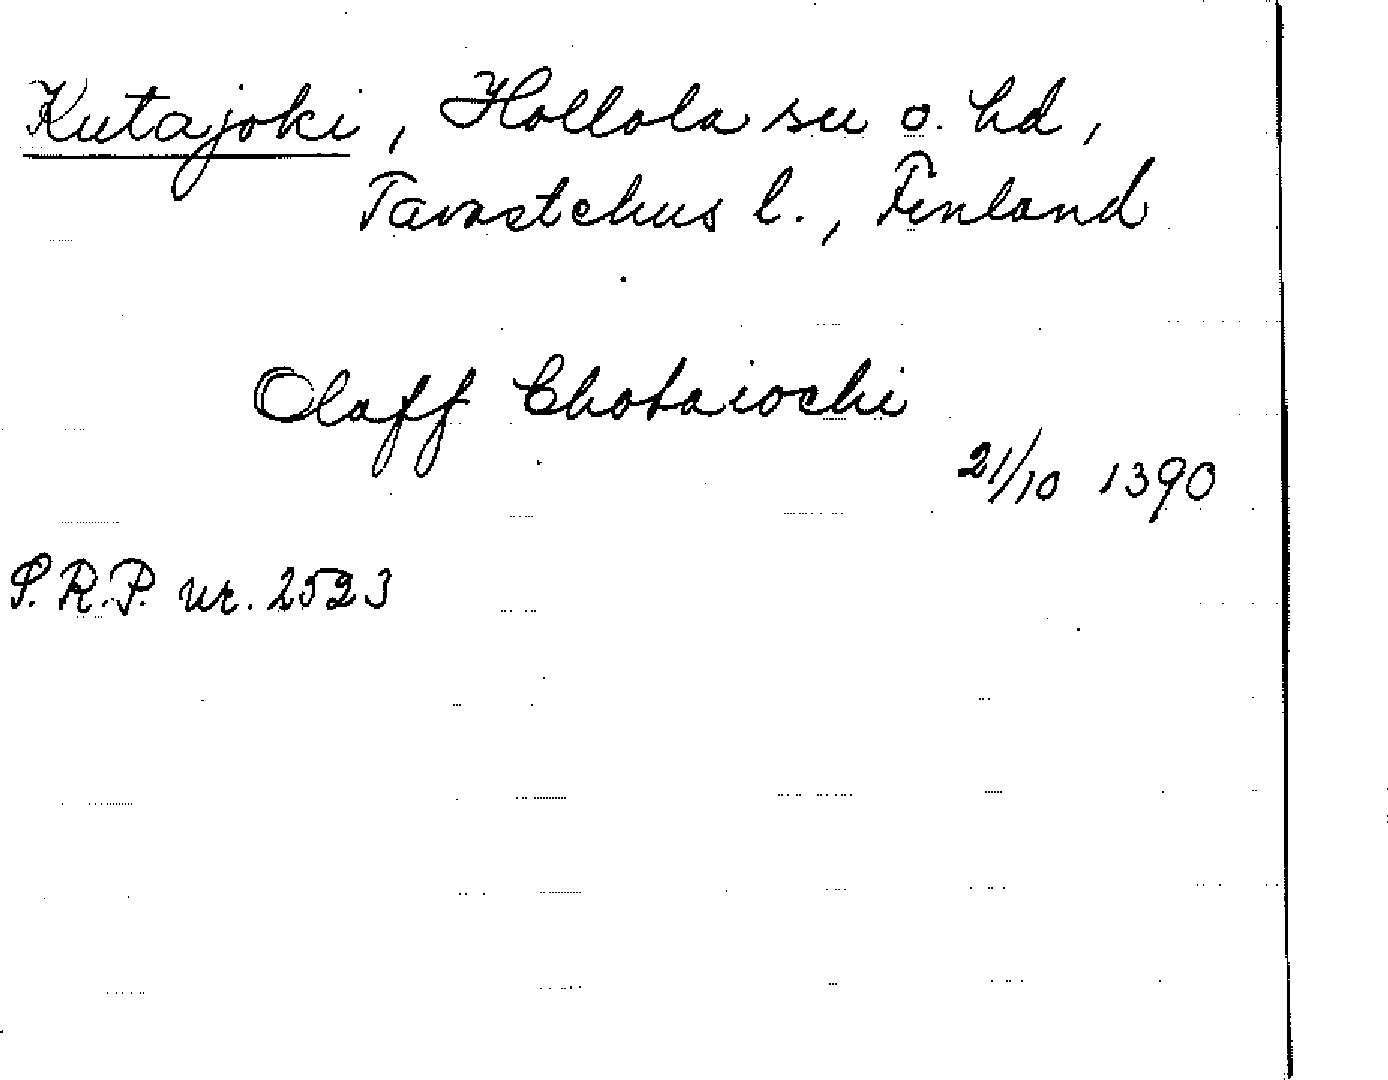 Kutajoki, Hollola sn o. hd,
Tavastehus l., Finland
Olaff Chotaiochi
21/10 1390
S.R.P. nr. 2523